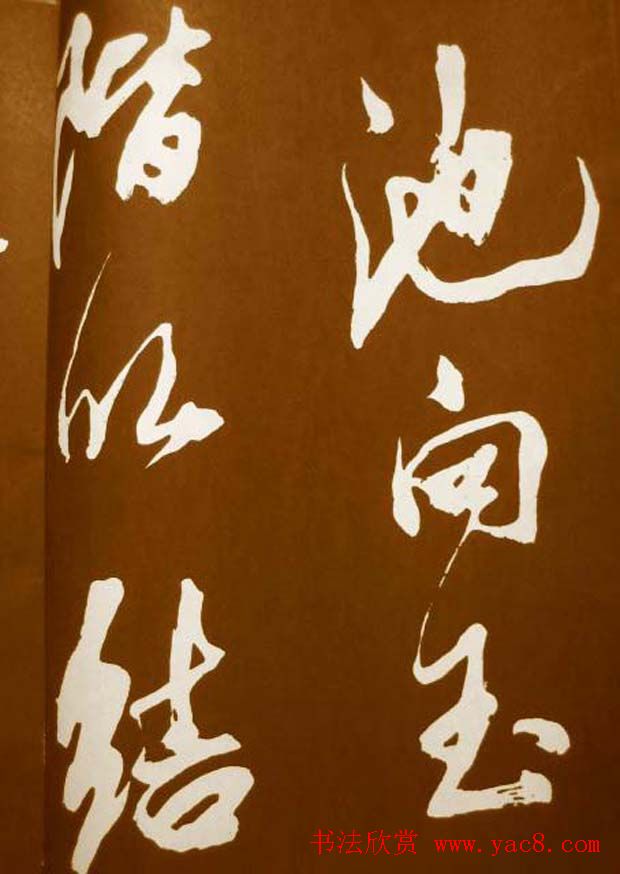 池向玉
階似结
书法欣赏 www.yac8.com